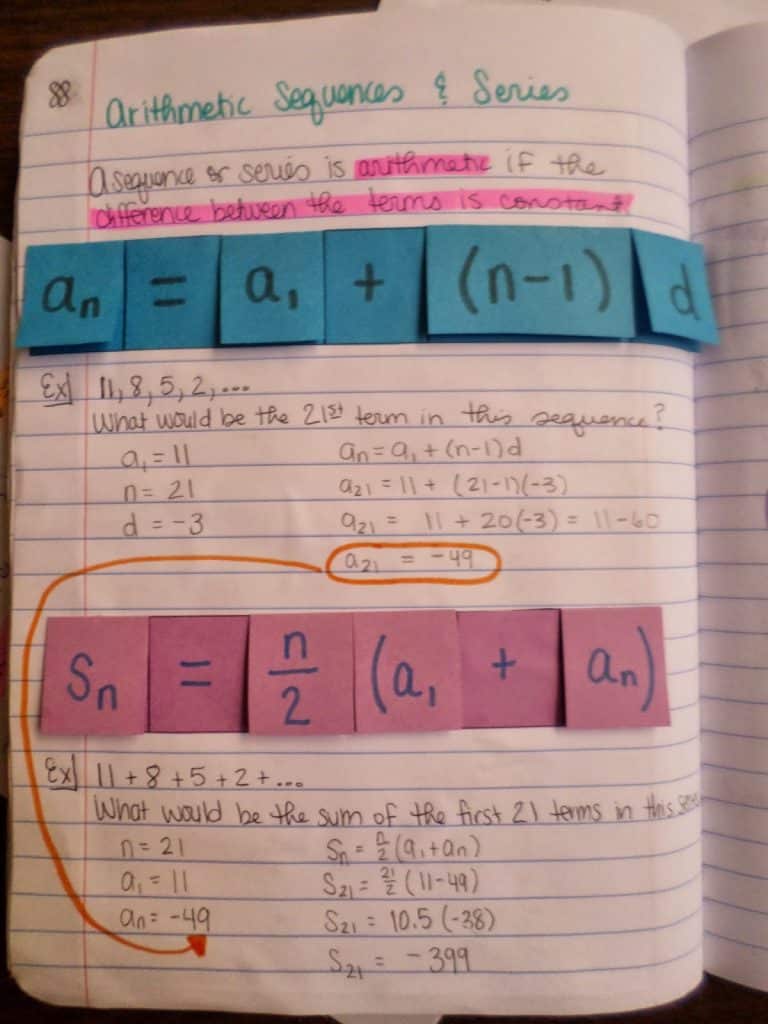 88
Arithmetic Sequences & Series
A sequence or series is arithmetic if the
difference between the terms is constant
aₙ = a₁ + (n-1) d
Ex| 11, 8, 5, 2, ...
What would be the 21st term in this sequence?
a₁ = 11 aₙ = a₁ + (n-1)d
n = 21 a₂₁ = 11 + (21-1)(-3)
d = -3 a₂₁ = 11 + 20(-3) = 11-60
a₂₁ = -49
Sₙ = n/2 (a₁ + aₙ)
Ex| 11 + 8 + 5 + 2 + ...
What would be the sum of the first 21 terms in this
n = 21 Sₙ = n/2 (a₁ + aₙ)
a₁ = 11 S₂₁ = 21/2 (11-49)
aₙ = -49 S₂₁ = 10.5 (-38)
S₂₁ = -399